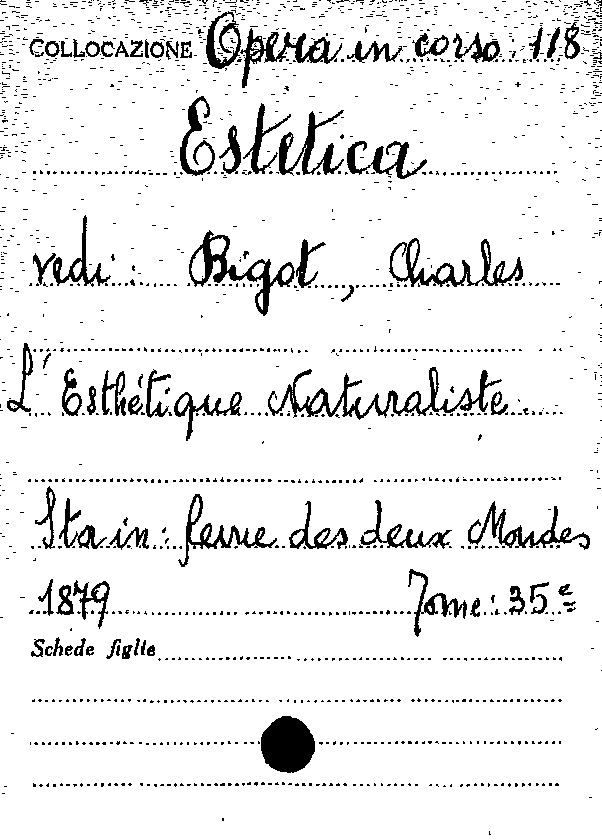 COLLOCAZIONE Opera in corso. 118
Estetica
vedi: Bigot, Charles
L'Esthétique Naturaliste.
Sta in: Revue des deux Mondes
1879 Tome: 35e
Schede figlie